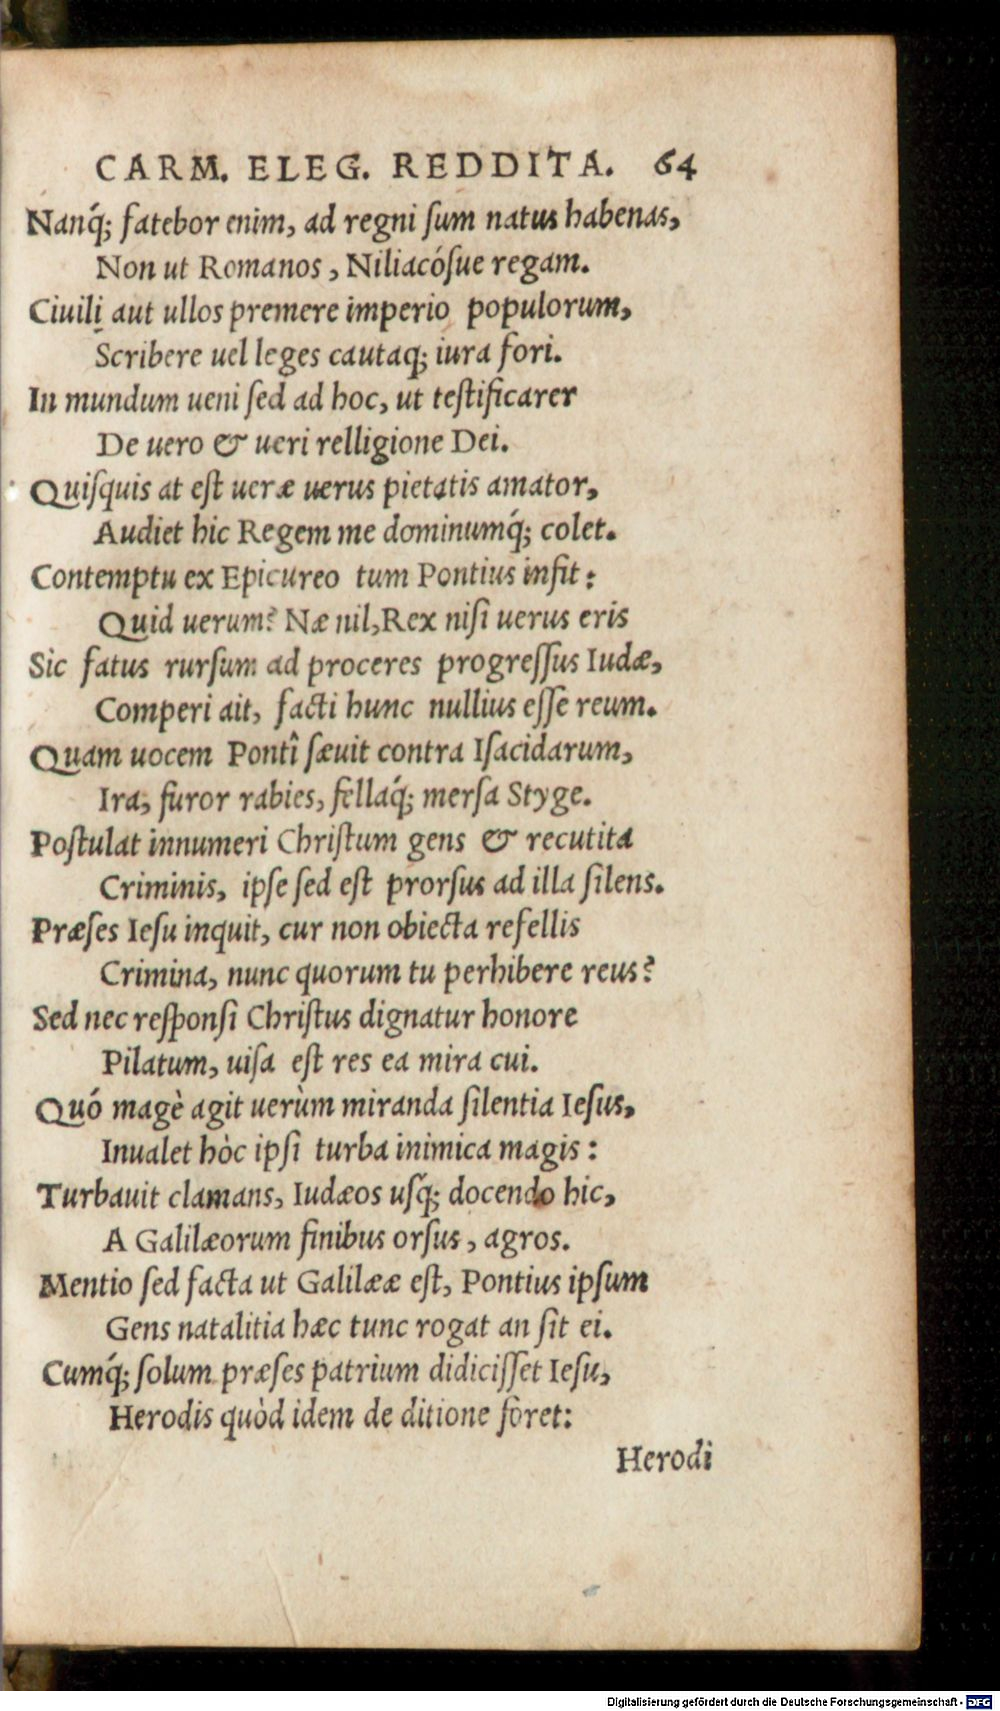 CARM. ELEG. REDDITA. 64
Nanq́; fatebor enim, ad regni ſum natus habenas,
Non ut Romanos, Niliacóſue regam.
Ciuili aut ullos premere imperio populorum,
Scribere uel leges cautaq; iura fori.
In mundum ueni ſed ad hoc, ut teſtificarer
De uero & ueri relligione Dei.
Quiſquis at eſt ueræ uerus pietatis amator,
Audiet hic Regem me dominumq́; colet.
Contemptu ex Epicureo tum Pontius infit:
Quid uerum? Næ nil, Rex niſi uerus eris
Sic fatus rurſum ad proceres progreſſus Iudæ,
Comperi ait, facti hunc nullius eſſe reum.
Quam uocem Pontî ſæuit contra Iſacidarum,
Ira, furor rabies, fellaq́; merſa Styge.
Poſtulat innumeri Chriſtum gens & recutita
Criminis, ipſe ſed eſt prorſus ad illa ſilens.
Præſes Ieſu inquit, cur non obiecta refellis
Crimina, nunc quorum tu perhibere reus?
Sed nec reſponſi Chriſtus dignatur honore
Pilatum, uiſa eſt res ea mira cui.
Quó magè agit uerùm miranda ſilentia Ieſus,
Inualet hòc ipſi turba inimica magis:
Turbauit clamans, Iudæos uſq́; docendo hic,
A Galilæorum finibus orſus, agros.
Mentio ſed facta ut Galilææ eſt, Pontius ipſum
Gens natalitia hæc tunc rogat an ſit ei.
Cumq́; ſolum præſes patrium didiciſſet Ieſu,
Herodis quòd idem de ditione foret:
Herodi
Digitalisierung gefördert durch die Deutsche Forschungsgemeinschaft - DFG